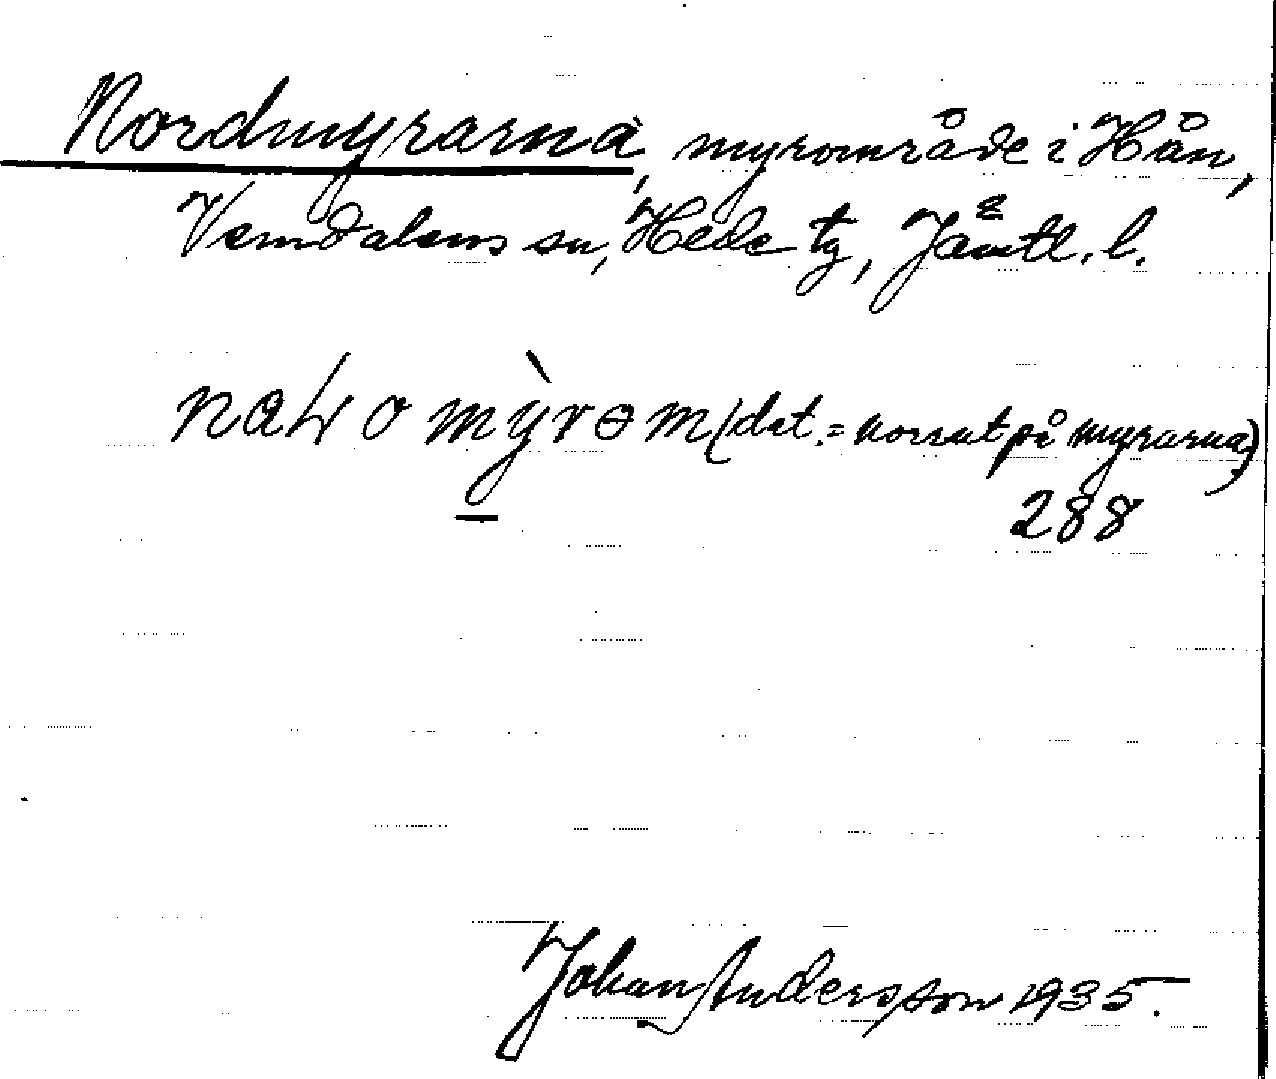 Nordmyrarna, myrområde i Hån,
Vemdalens sn, Hede tg, Jämtl. l.
(dat. = norrut på myrarna)
288
Johan Andersson 1935.